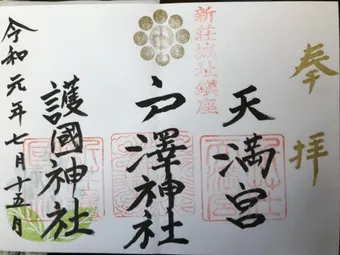 奉拝
新荘城址鎮座
天満宮
戸澤神社
護國神社
令和元年七月十五日